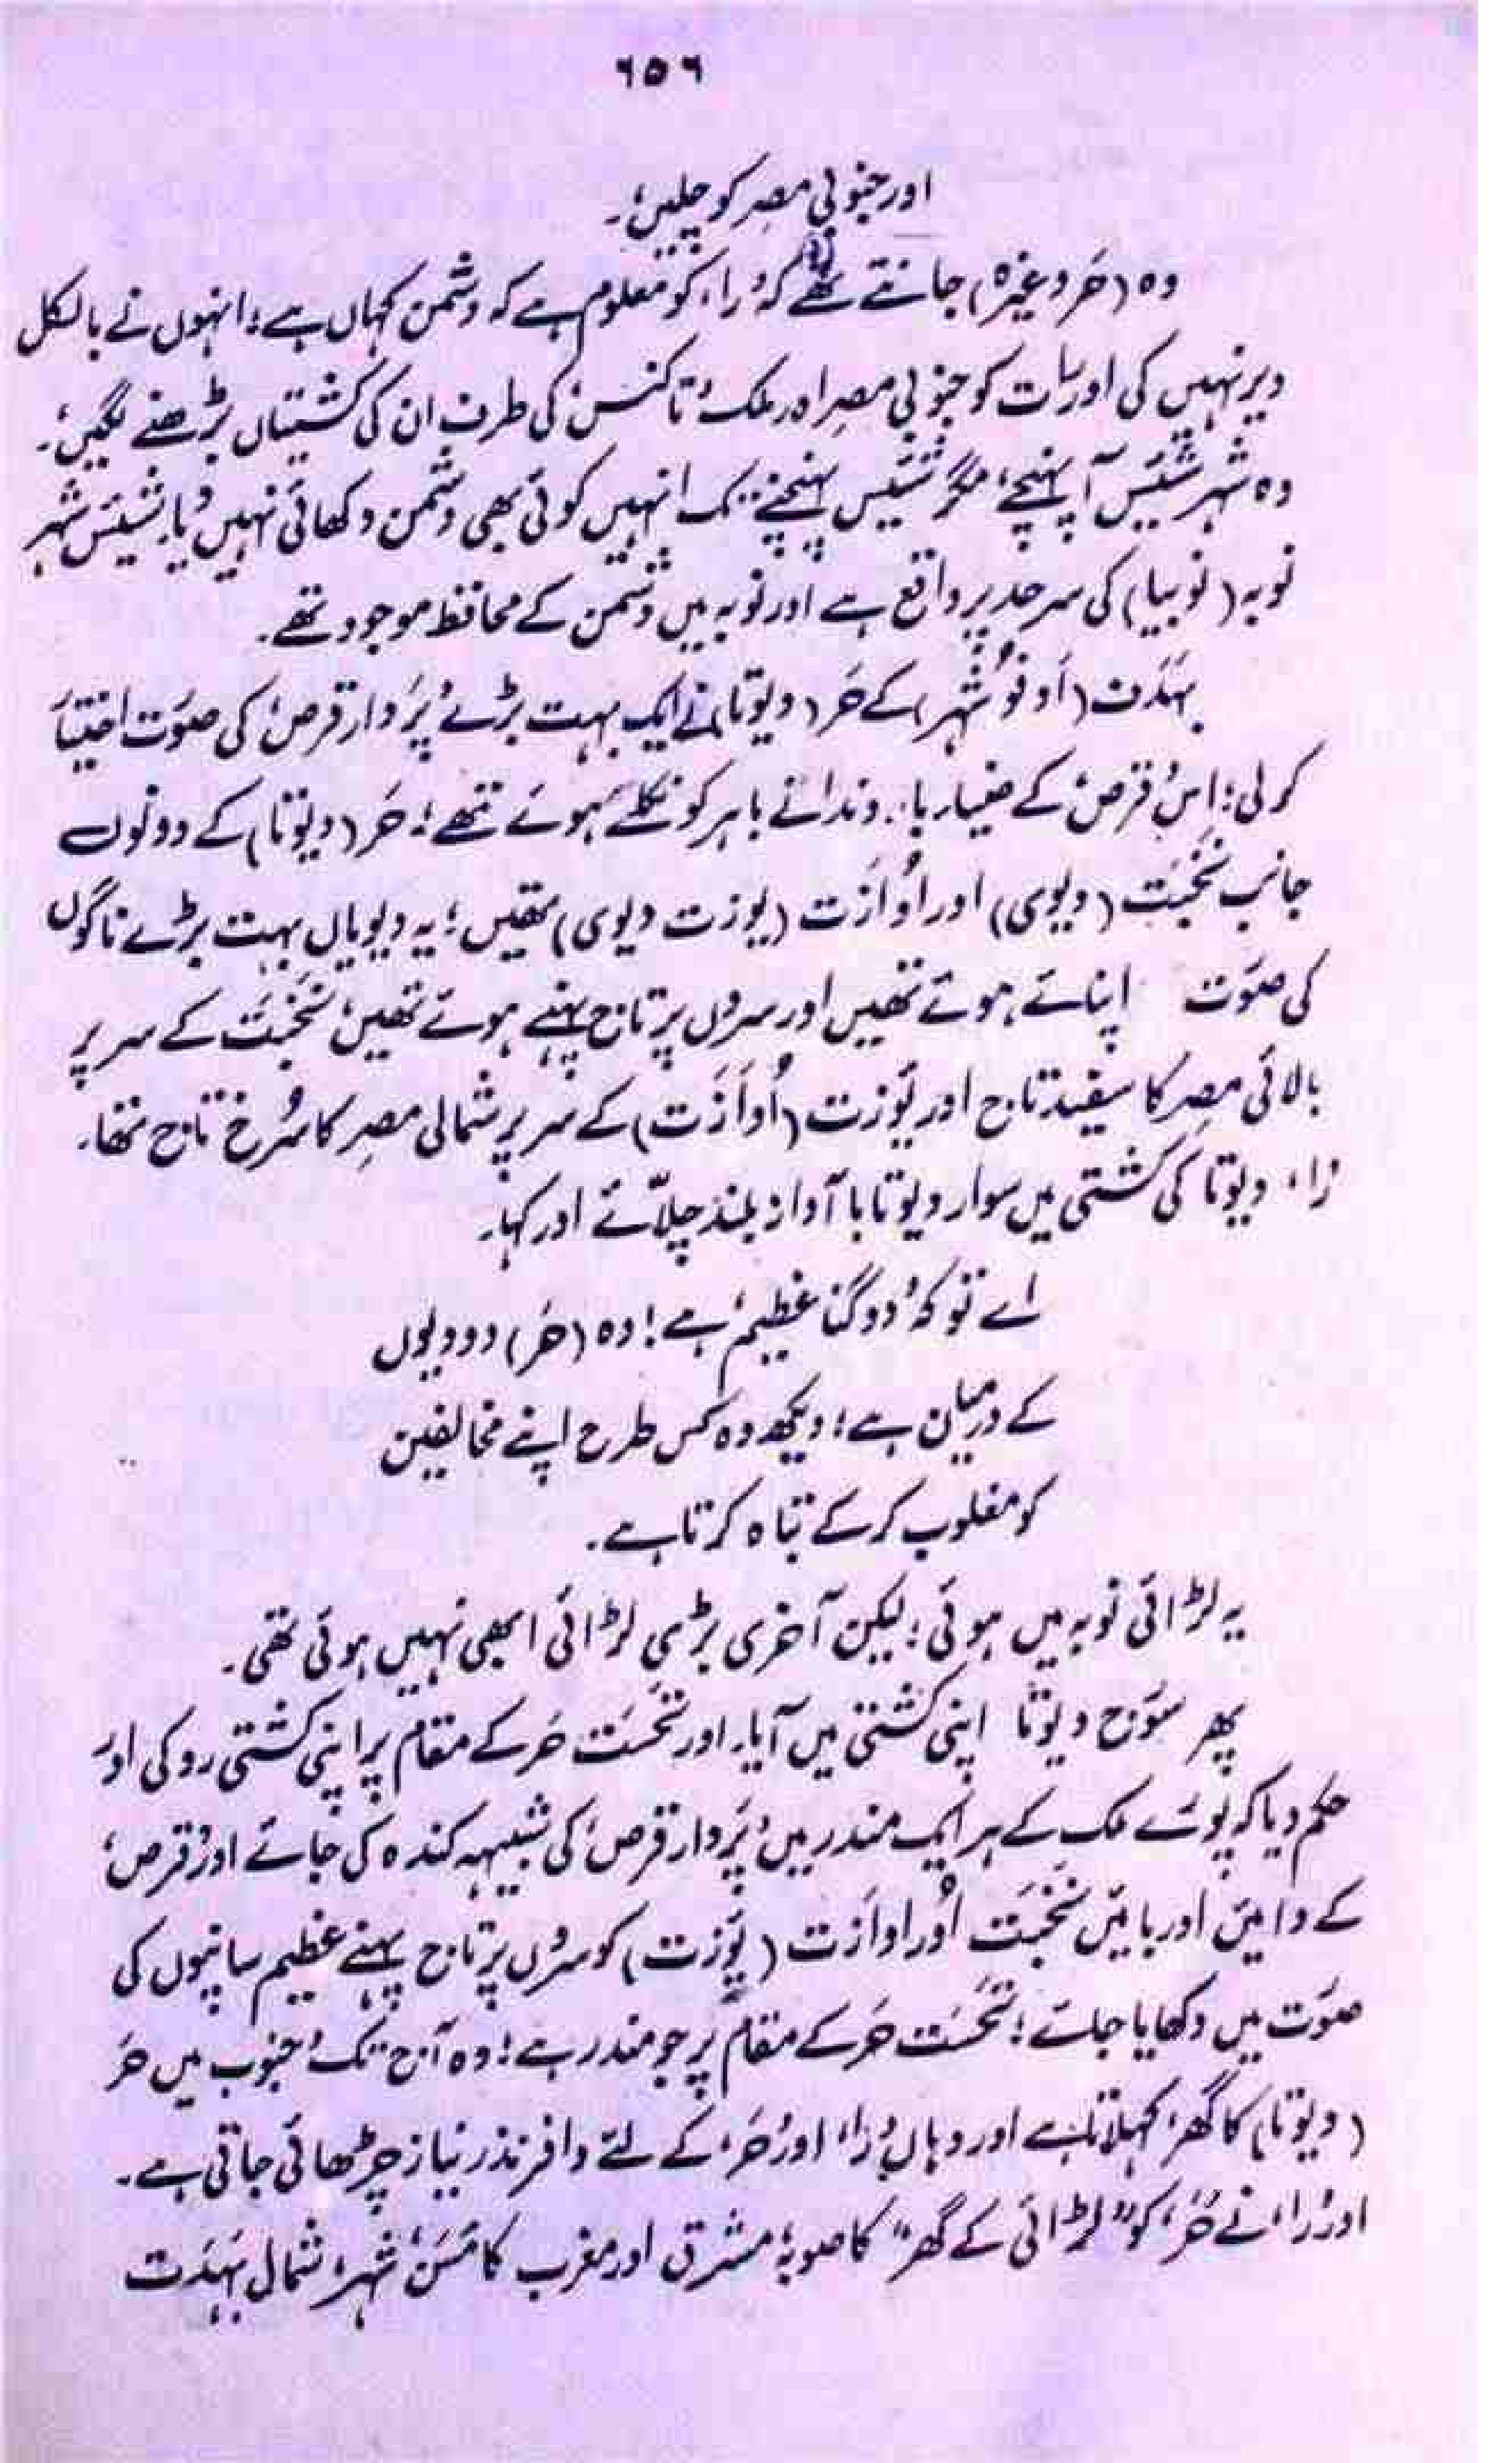 ۶۵۶
اور جنوبی مصر کو چلیں'۔
وہ (حَر وغیرہ) جانتے تھے کہ 'را' کو معلوم ہے کہ دشمن کہاں ہے؛ انہوں نے بالکل
دیر نہیں کی اور رات کو جنوبی مصر اور ملک 'تاکنس' کی طرف ان کی کشتیاں بڑھنے لگیں'۔
وہ شہر شئیس آ پہنچے؛ مگر شئیس پہنچنے تک انہیں کوئی بھی دشمن دکھائی نہیں دیا۔ شئیس شہر
نوبہ (نوبیا) کی سرحد پر واقع ہے اور نوبہ میں دشمن کے محافظ موجود تھے۔
بہدَت (اَدفُو شہر) کے حَر (دیوتا) نے ایک بہت بڑے 'پَر دار قرص' کی صورت اختیار
کر لی؛ اِس 'قرص' کے ضیار بار دندانے باہر کو نکلے ہوئے تھے؛ حَر (دیوتا) کے دونوں
جانب نخبَت (دیوی) اور اُوازَت (یوزت دیوی) تھیں؛ یہ دیویاں بہت بڑے ناگوں
کی صورت اپنائے ہوئے تھیں اور سروں پر تاج پہنے ہوئے تھیں؛ نخبَت کے سر پر
بالائی مصر کا سفید تاج اور یوزت (اُواَزَت) کے سر پر شمالی مصر کا سُرخ تاج تھا۔
'را' دیوتا کی کشتی میں سوار دیوتا با آواز بلند چلّائے اور کہا۔
اے تو کہ 'دوگنا عظیم' ہے! وہ (حَر) دو دیویوں
کے درمیان ہے؛ دیکھ وہ کس طرح اپنے مخالفین
کو مغلوب کر کے تباہ کرتا ہے۔
یہ لڑائی نوبہ میں ہوئی؛ لیکن آخری بڑی لڑائی ابھی نہیں ہوئی تھی۔
پھر سورج دیوتا اپنی کشتی میں آیا۔ اور تخسَت حَر کے مقام پر اپنی کشتی روکی اور
حکم دیا کہ پورے ملک کے ہر ایک مندر میں 'پَر دار قرص' کی شبیہہ کندہ کی جائے اور 'قرص'
کے دائیں اور بائیں نخبَت اور اُوازَت (یوزت) کو سروں پر تاج پہنے عظیم سانپوں کی
صورت میں دکھایا جائے؛ تخسَت حَر کے مقام پر جو مندر ہے؛ وہ آج تک 'جنوب میں حَر
(دیوتا) کا گھر' کہلاتا ہے اور وہاں 'را' اور 'حَر' کے لئے وافر نذر نیاز چڑھائی جاتی ہے۔
اور 'را' نے 'حَر' کو "لڑائی کے گھر" کا صوبہ' مشرق اور مغرب کا مَسَن' شہر' شمال بہدَت